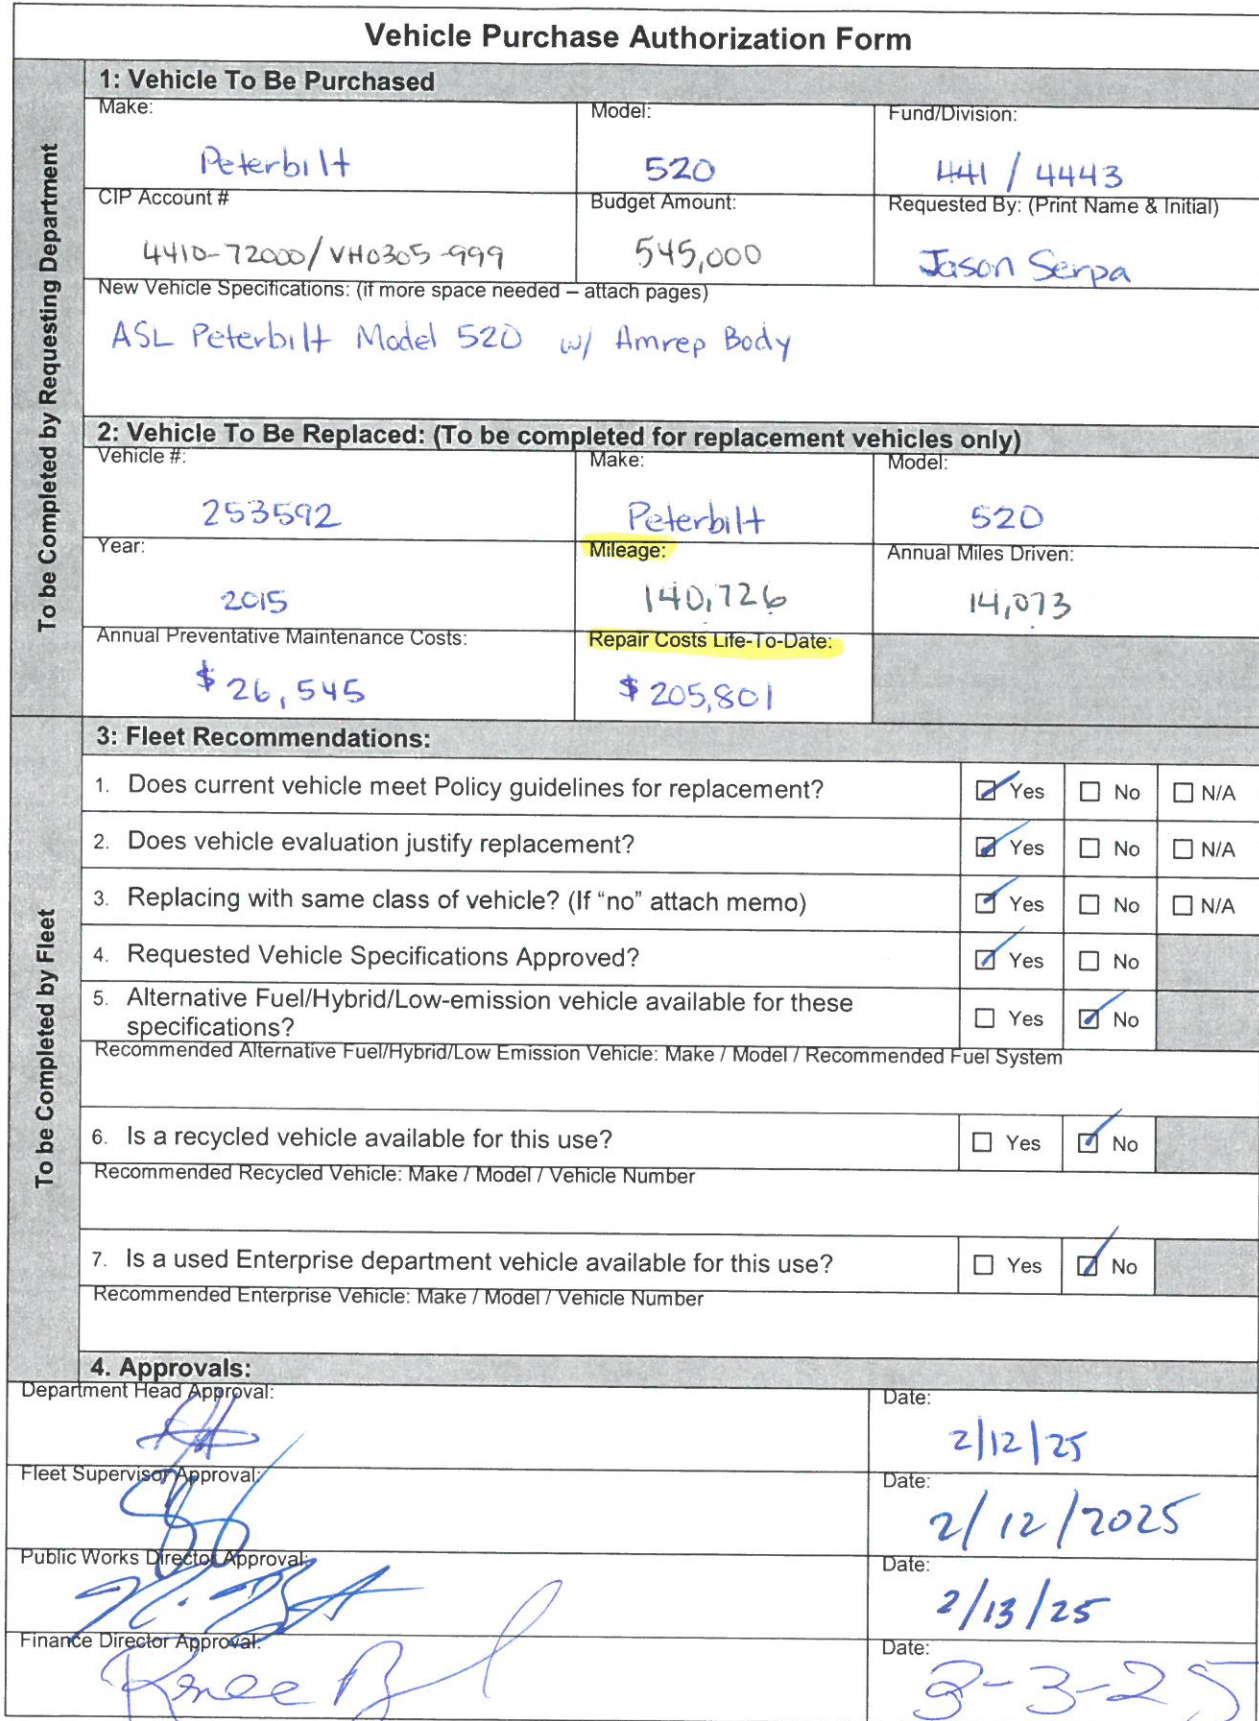 Vehicle Purchase Authorization Form
To be Completed by Requesting Department
1: Vehicle To Be Purchased
Make:
Peterbilt
Model:
520
Fund/Division:
441 / 4443
CIP Account #
4410-72000/VH0305-999
Budget Amount:
545,000
Requested By: (Print Name & Initial)
Jason Serpa
New Vehicle Specifications: (if more space needed – attach pages)
ASL Peterbilt Model 520 w/ Amrep Body
2: Vehicle To Be Replaced: (To be completed for replacement vehicles only)
Vehicle #:
253592
Make:
Peterbilt
Model:
520
Year:
2015
Mileage:
140,726
Annual Miles Driven:
14,073
Annual Preventative Maintenance Costs:
$ 26,545
Repair Costs Life-To-Date:
$ 205,801
To be Completed by Fleet
3: Fleet Recommendations:
1. Does current vehicle meet Policy guidelines for replacement? Yes No N/A
2. Does vehicle evaluation justify replacement? Yes No N/A
3. Replacing with same class of vehicle? (If “no” attach memo) Yes No N/A
4. Requested Vehicle Specifications Approved? Yes No
5. Alternative Fuel/Hybrid/Low-emission vehicle available for these
specifications? Yes No
Recommended Alternative Fuel/Hybrid/Low Emission Vehicle: Make / Model / Recommended Fuel System
6. Is a recycled vehicle available for this use? Yes No
Recommended Recycled Vehicle: Make / Model / Vehicle Number
7. Is a used Enterprise department vehicle available for this use? Yes No
Recommended Enterprise Vehicle: Make / Model / Vehicle Number
4. Approvals:
Department Head Approval:
Date:
2/12/25
Fleet Supervisor Approval:
Date:
2/12/2025
Public Works Director Approval:
Date:
2/13/25
Finance Director Approval:
Renee
Date:
3-3-25